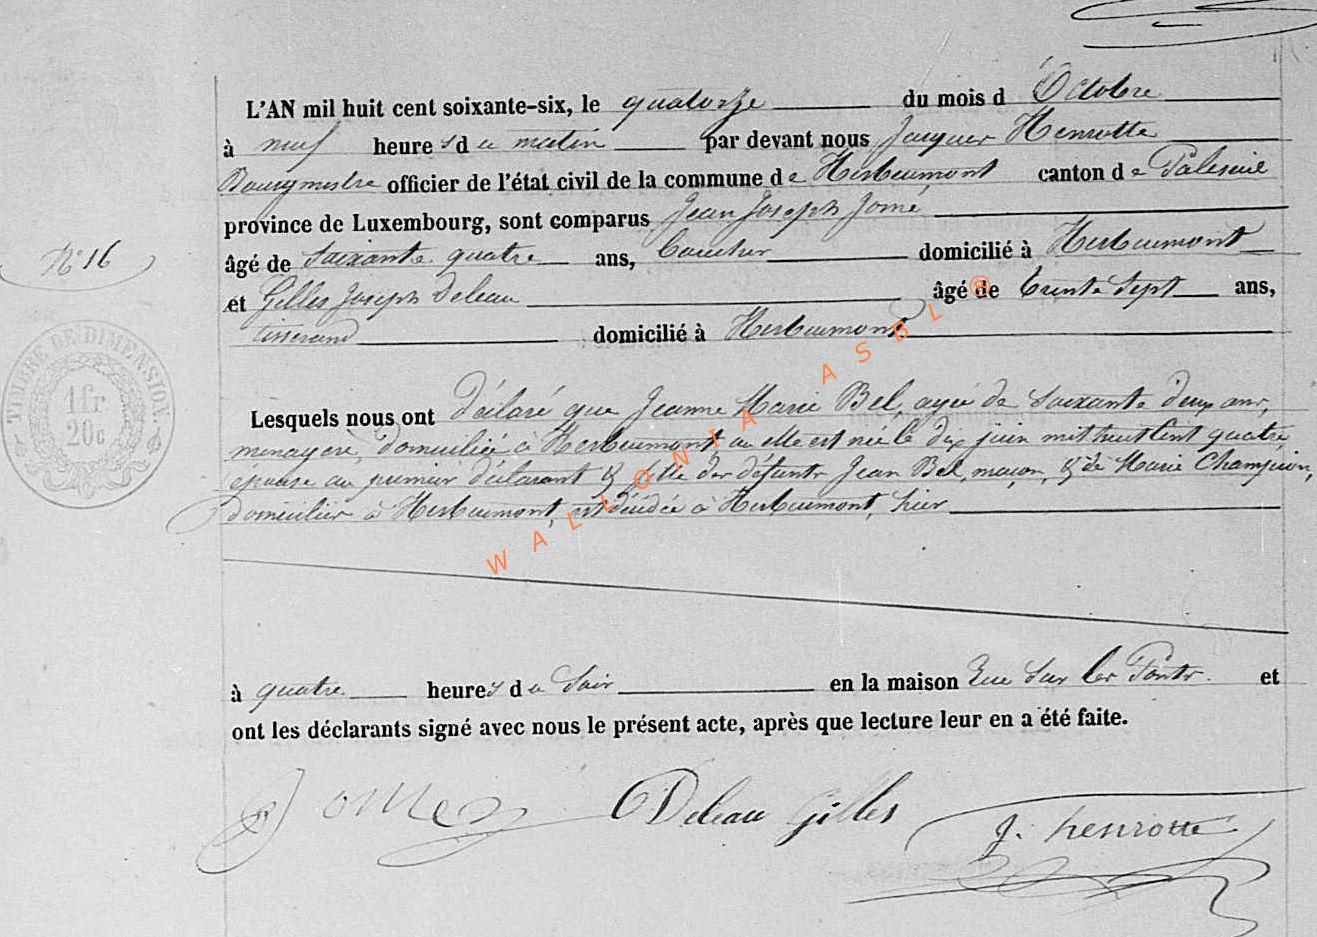 L'AN mil huit cent soixante-six, le quatorze du mois d'Octobre
à neuf heures du matin par devant nous Jacques Henrotte
Bourgmestre officier de l'état civil de la commune de Herbeumont canton de Paliseul
province de Luxembourg, sont comparus Jean Joseph Jomé
N° 16
âgé de Soixante quatre ans, domicilié à Herbeumont
et Gilles Joseph Deleau âgé de trente Sept ans,
tisserand domicilié à Herbeumont
TIMBRE DE DIMENSION
1fr
20c
Lesquels nous ont Déclaré que Jeanne Marie Bel, agée de Soixante deux ans,
menagère, domiciliée à Herbeumont où elle est née le dix juin mil huit Cent quatre
épouse au premier déclarant & fille des défunts Jean Bel, maçon, & de Marie Champion,
domiciliés à Herbeumont, est décédée à Herbeumont, hier
WALLONIA ASBL ®
à quatre heures du Soir en la maison Rue Sur les Ponts et
ont les déclarants signé avec nous le présent acte, après que lecture leur en a été faite.
Deleau Gilles
J. henrotte